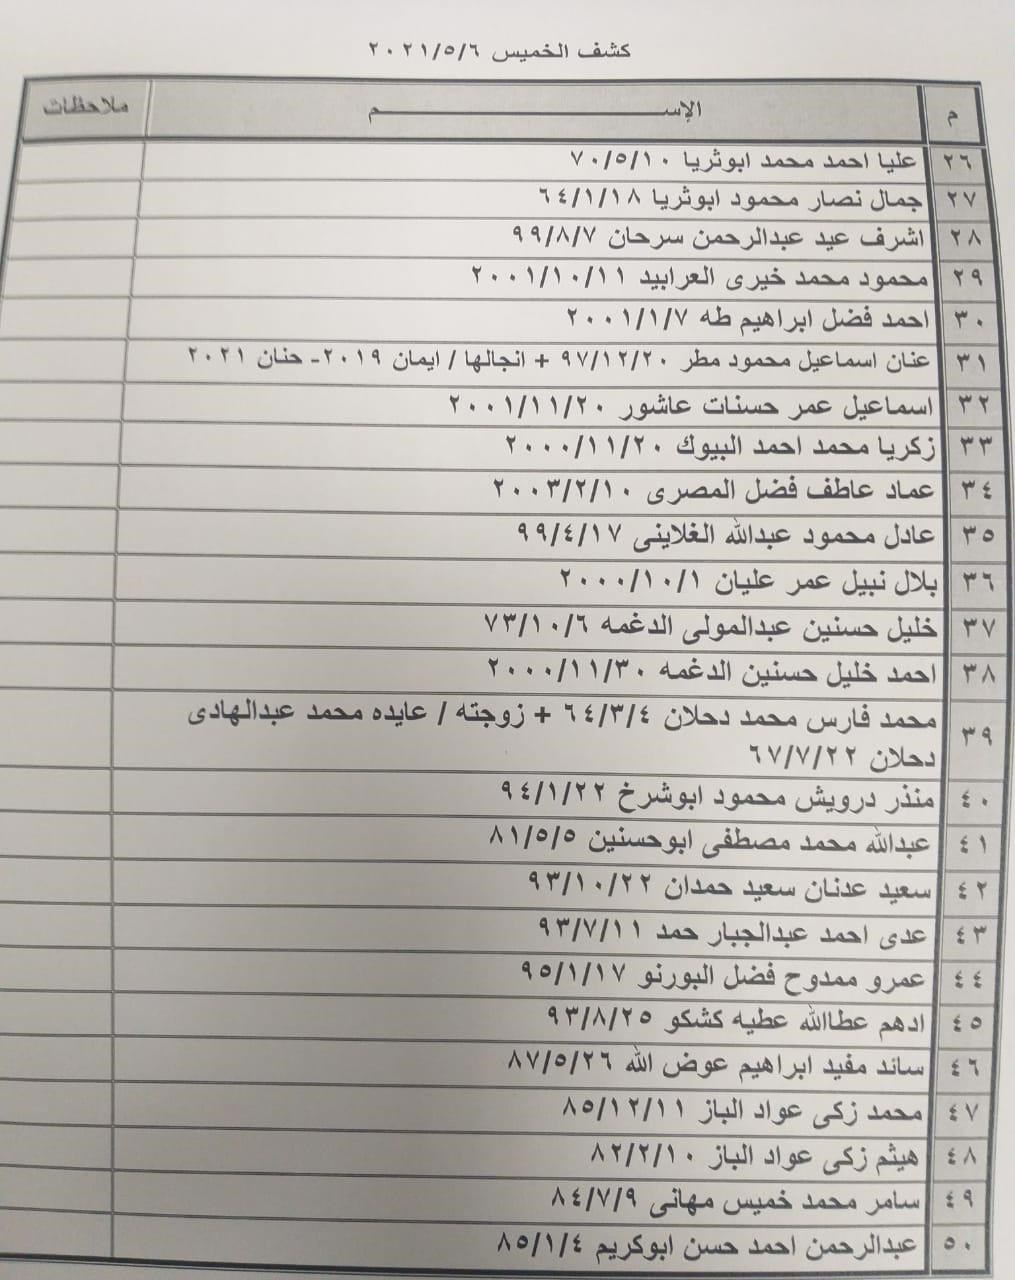 كشف الخميس ٢٠٢١/٥/٦
م الإســـــــــــــــــــــم ملاحظات
٢٦ عليا احمد محمد ابوثريا ٧٠/٥/١٠
٢٧ جمال نصار محمود ابوثريا ٦٤/١/١٨
٢٨ اشرف عيد عبدالرحمن سرحان ٩٩/٨/٧
٢٩ محمود محمد خيرى العرابيد ٢٠٠١/١٠/١١
٣٠ احمد فضل ابراهيم طه ٢٠٠١/١/٧
٣١ عنان اسماعيل محمود مطر ٩٧/١٢/٢٠ + انجالها / ايمان ٢٠١٩- حنان ٢٠٢١
٣٢ اسماعيل عمر حسنات عاشور ٢٠٠١/١١/٢٠
٣٣ زكريا محمد احمد البيوك ٢٠٠٠/١١/٢٠
٣٤ عماد عاطف فضل المصرى ٢٠٠٣/٢/١٠
٣٥ عادل محمود عبدالله الغلاينى ٩٩/٤/١٧
٣٦ بلال نبيل عمر عليان ٢٠٠٠/١٠/١
٣٧ خليل حسنين عبدالمولى الدغمه ٧٣/١٠/٦
٣٨ احمد خليل حسنين الدغمه ٢٠٠٠/١١/٣٠
٣٩ محمد فارس محمد دحلان ٦٤/٣/٤ + زوجته / عايده محمد عبدالهادى
دحلان ٦٧/٧/٢٢
٤٠ منذر درويش محمود ابوشرخ ٩٤/١/٢٢
٤١ عبدالله محمد مصطفى ابوحسنين ٨١/٥/٥
٤٢ سعيد عدنان سعيد حمدان ٩٣/١٠/٢٢
٤٣ عدى احمد عبدالجبار حمد ٩٣/٧/١١
٤٤ عمرو ممدوح فضل البورنو ٩٥/١/١٧
٤٥ ادهم عطاالله عطيه كشكو ٩٣/٨/٢٥
٤٦ سائد مفيد ابراهيم عوض الله ٨٧/٥/٢٦
٤٧ محمد زكى عواد الباز ٨٥/١٢/١١
٤٨ هيثم زكى عواد الباز ٨٢/٢/١٠
٤٩ سامر محمد خميس مهانى ٨٤/٧/٩
٥٠ عبدالرحمن احمد حسن ابوكريم ٨٥/١/٤